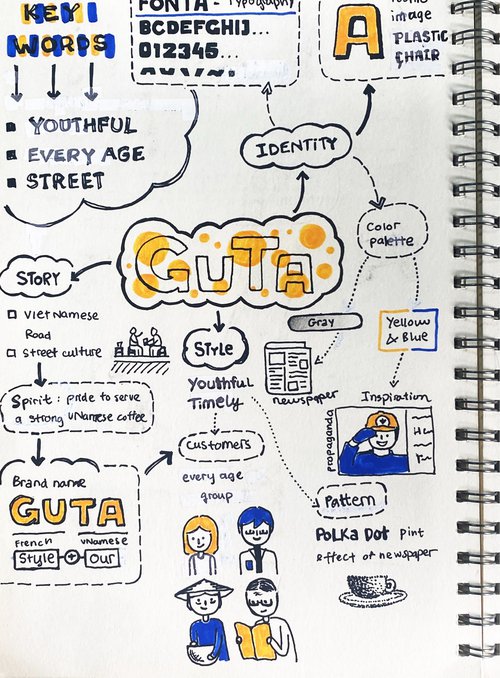 KEY
WORDS
YOUTHFUL
EVERY AGE
STREET
FONTA - Typography
BCDEFGHIJ...
012345...
A
image
PLASTIC
CHAIR
IDENTITY
GUTA
Color
palette
Gray
newspaper
Yellow
& Blue
Inspiration
propaganda
STORY
Vietnamese
Road
Street culture
Spirit: pride to serve
a strong VNamese coffee
Brand name
GUTA
French
VNamese
Style + Our
STYLE
Youthful
Timely
Customers
every age
group
Pattern
POLKA DOT pint
effect of newspaper